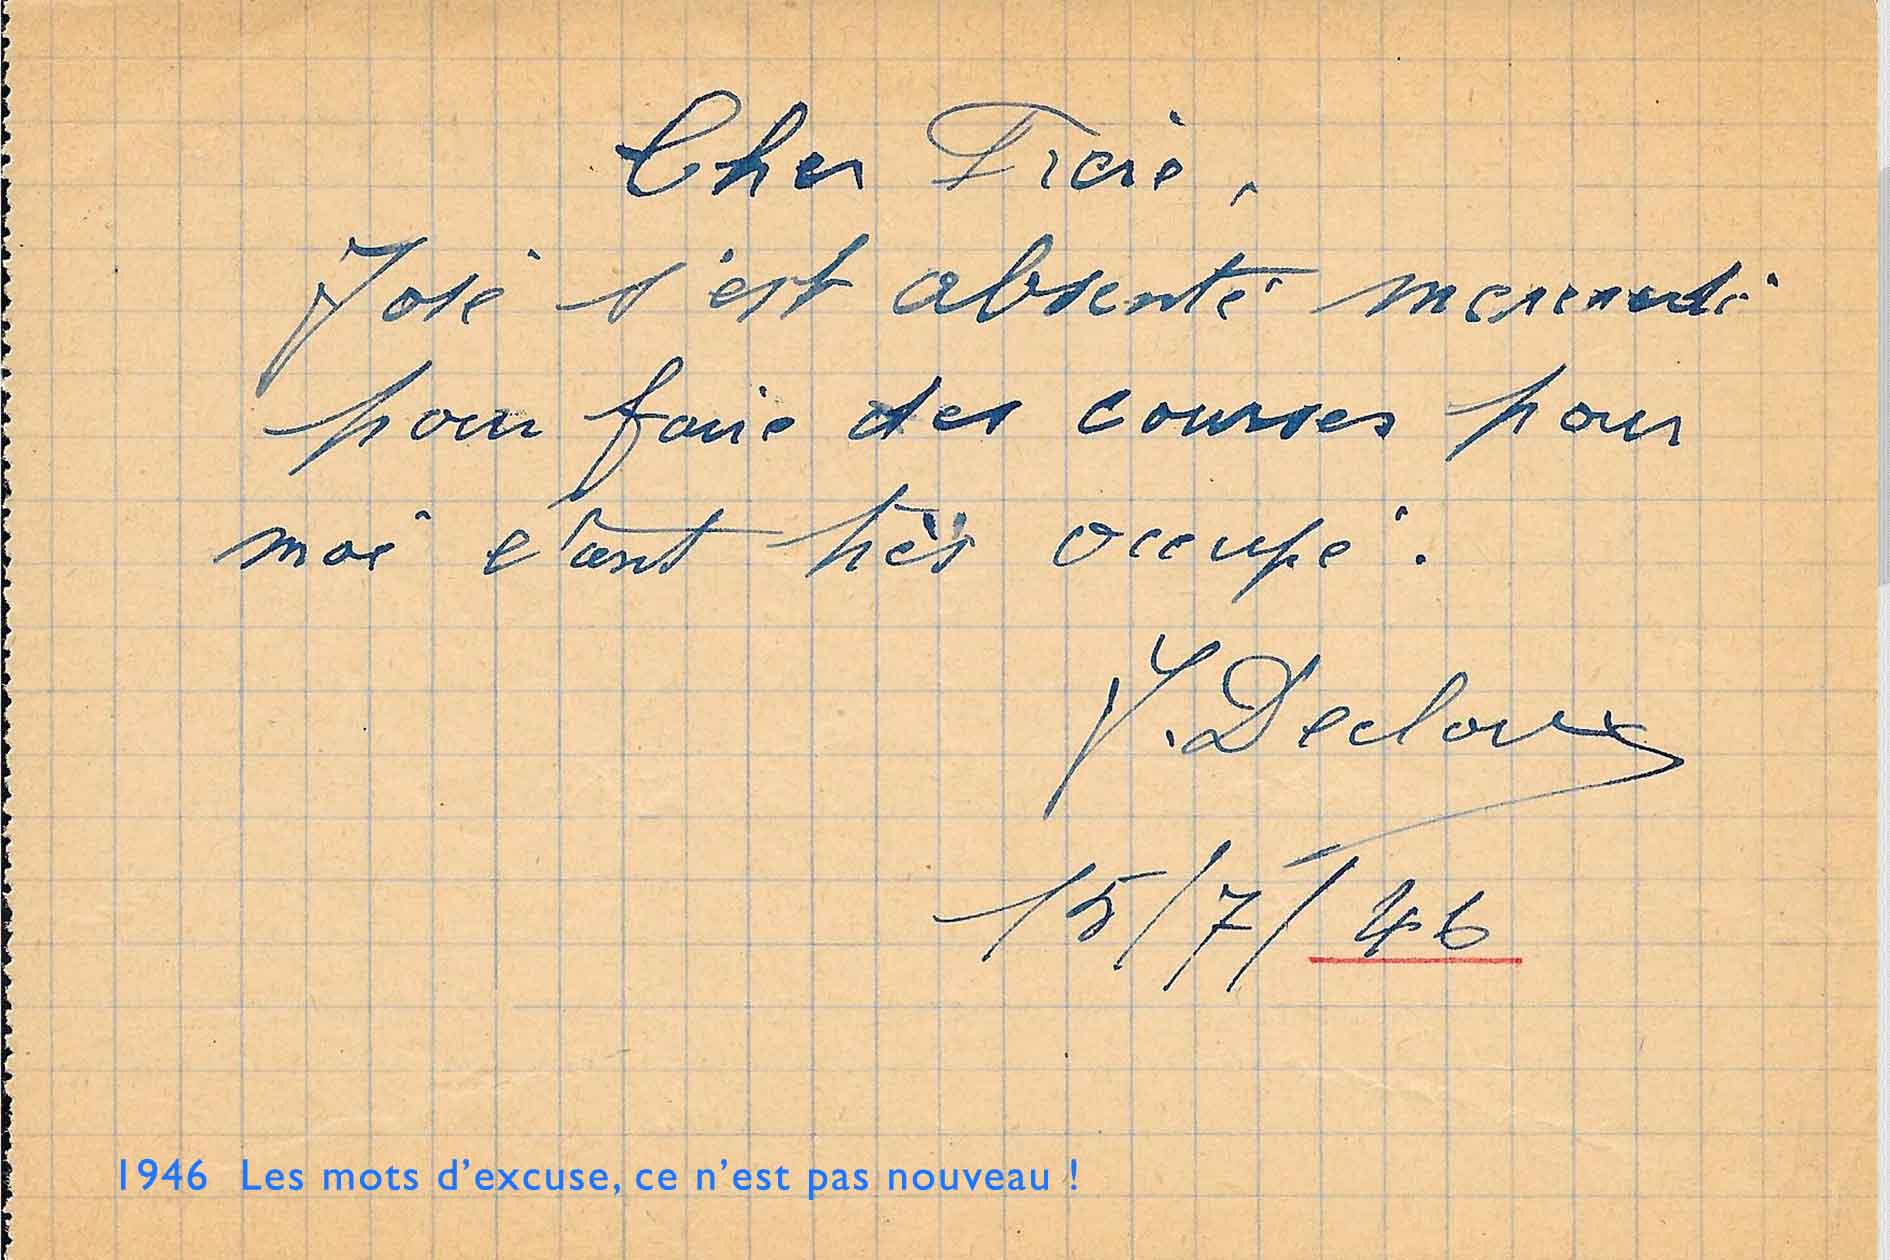 Cher Frère,
José s'est absenté mercredi
pour faire des courses pour
moi étant très occupé.
J. Decloux
15/7/46
1946 Les mots d'excuse, ce n'est pas nouveau !